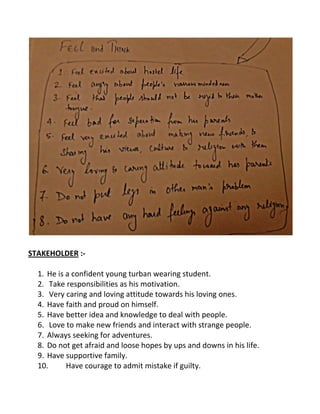 FEEL and THINK
1. Feel excited about hostel life
2. Feel angry about people's narrow mindedness
3. Feel that people should not be rigid to their mother
tongue.
4. Feel bad for separation from his parents
5. Feel very excited about making new friends, to
sharing his views, culture & religion with them
6. Very loving & caring attitude toward his parents
7. Do not put legs in other man's problem
8. Do not have any hard feelings against any religion
STAKEHOLDER :-
1. He is a confident young turban wearing student.
2. Take responsibilities as his motivation.
3. Very caring and loving attitude towards his loving ones.
4. Have faith and proud on himself.
5. Have better idea and knowledge to deal with people.
6. Love to make new friends and interact with strange people.
7. Always seeking for adventures.
8. Do not get afraid and loose hopes by ups and downs in his life.
9. Have supportive family.
10. Have courage to admit mistake if guilty.